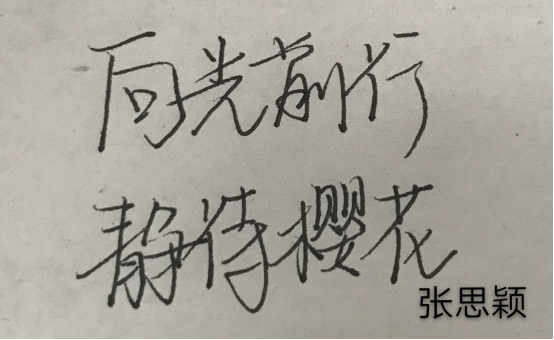 向光前行
静待樱花
张思颖